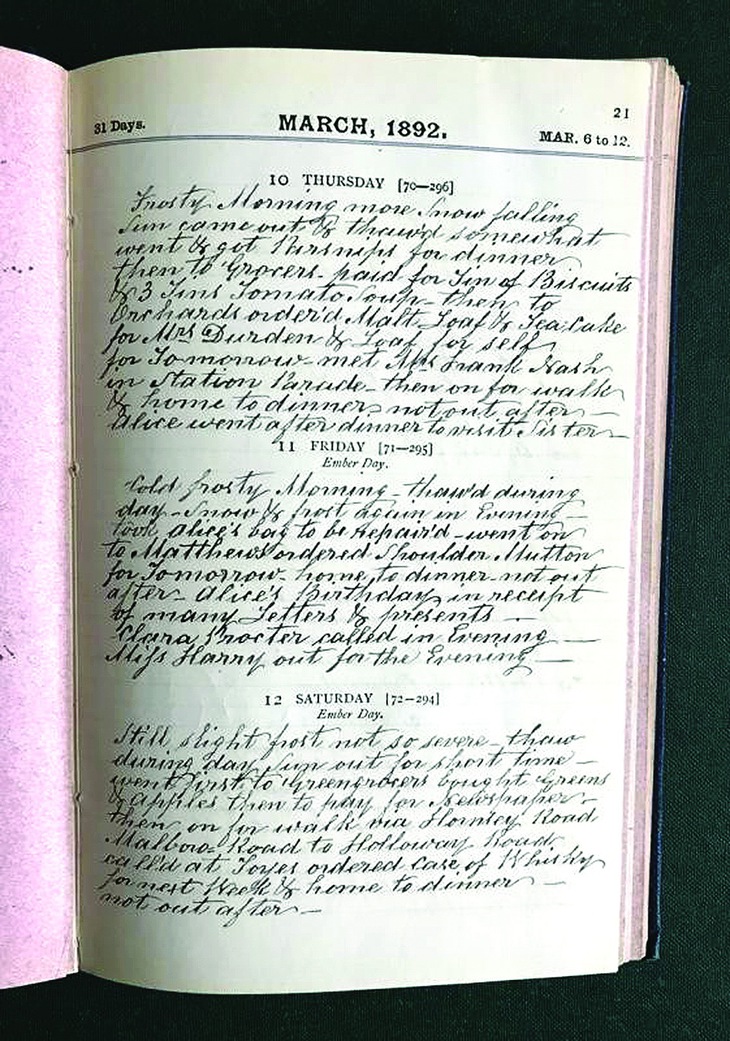 21
31 Days. MARCH, 1892. MAR. 6 to 12.
10 THURSDAY [70—296]
Frosty Morning more Snow falling
Sun came out & thaw'd somewhat
went & got Parsnips for dinner
then to Grocers - paid for Tin of Biscuits
& 3 Tins Tomato Soup - then to
Orchards order'd Malt Loaf & Tea Cake
for Mrs Durden & Loaf for self
for Tomorrow - met Mrs Frank Nash
in Station Parade - then on for walk
& home to dinner not out after —
Alice went after dinner to visit Sister —
11 FRIDAY [71—295]
Ember Day.
Cold frosty Morning - thaw'd during
day - Snow & frost again in Evening —
took Alice's bag to be repair'd - went on
to Matthews ordered Shoulder Mutton
for Tomorrow - home to dinner - not out
after - Alice's Birthday in receipt
of many Letters & presents —
Clara Procter called in Evening —
Miss Harry out for the Evening —
12 SATURDAY [72—294]
Ember Day.
Still slight frost not so severe - thaw
during day Sun out for short time —
went first to Greengrocers bought Greens
& apples then to pay for Newspaper —
then on for walk via Hornsey Road
Malboro Road to Holloway Road
call'd at Toyes ordered Case of Whisky
for next Week & home to dinner —
not out after —